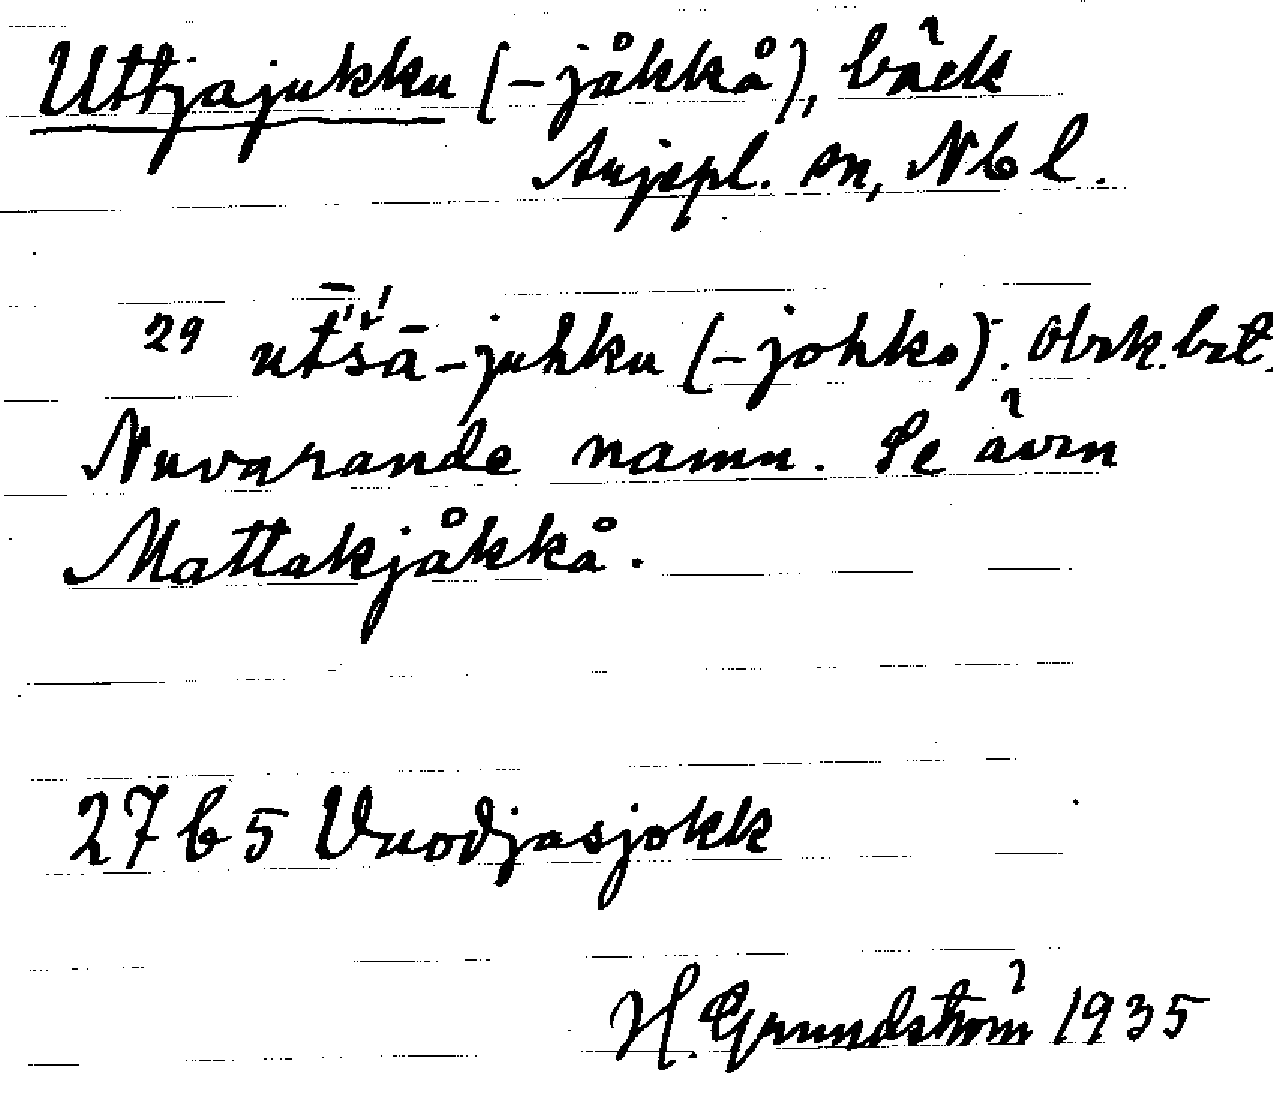 Uttjajukku (-jåkkå), bäck
Arjepl. sn, Nbl.
29 utśā-juhku (-johko). Obek. bet.
Nuvarande namn. Se även
Mattakjåkkå.
27 b 5 Vuodjasjokk
H. Grundström 1935